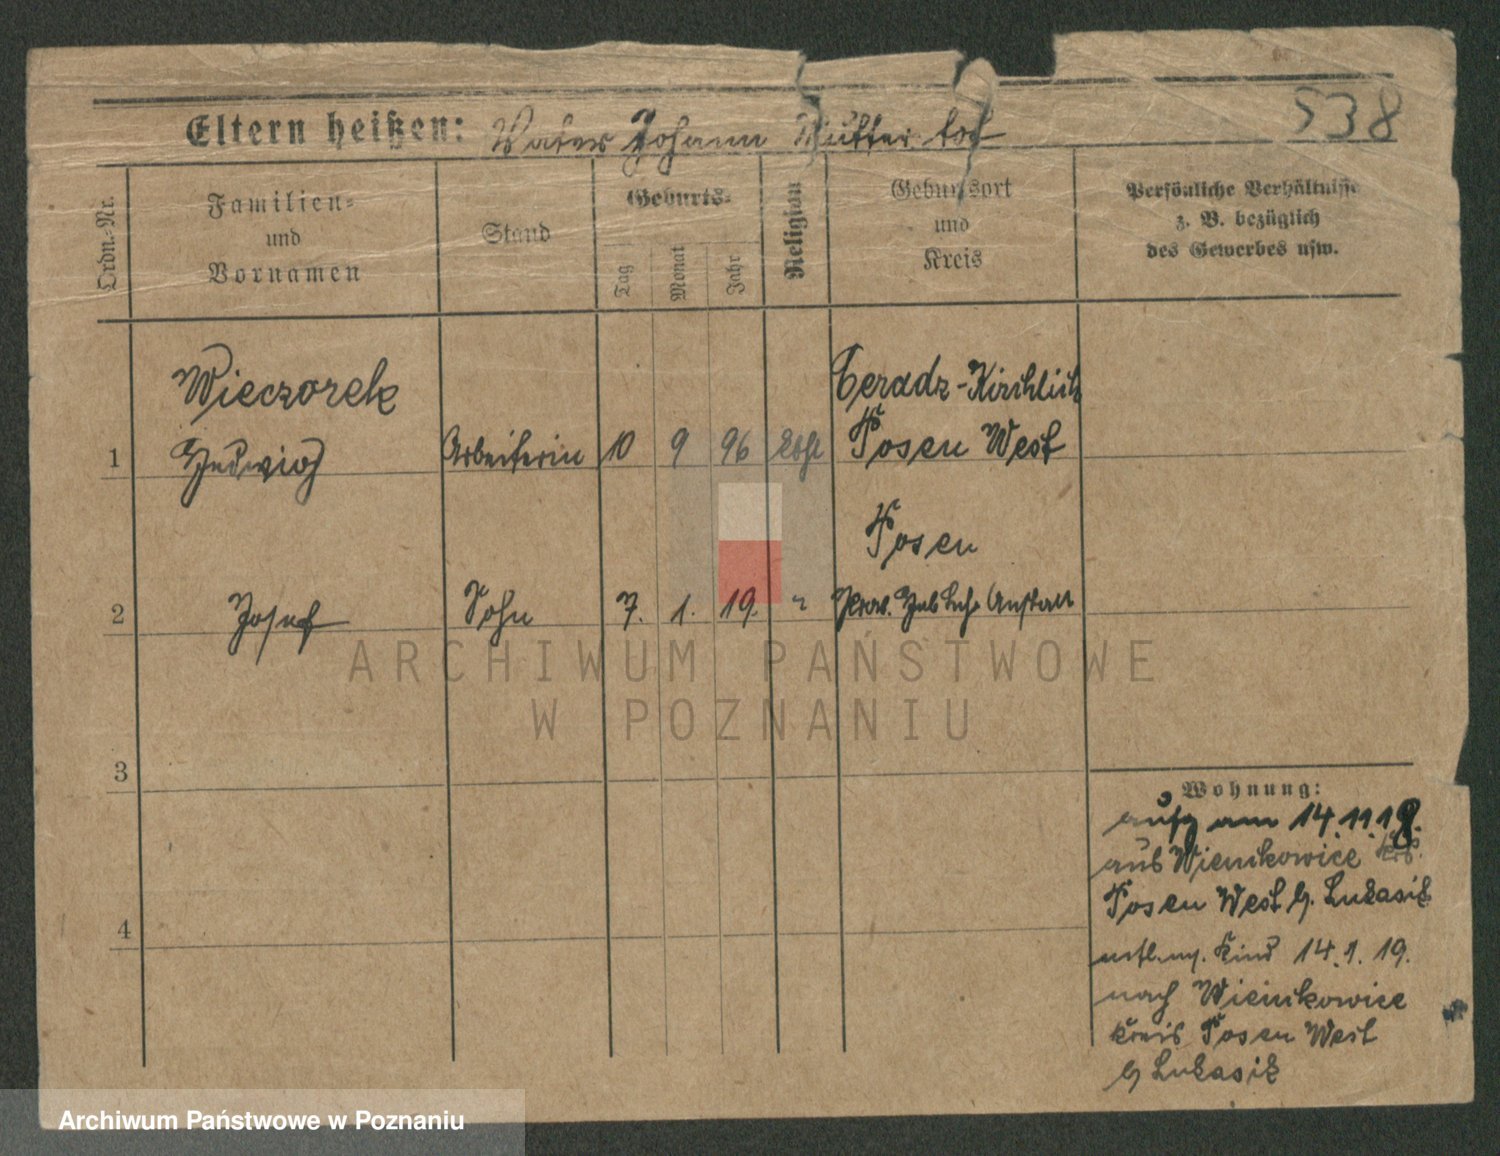 538
Eltern heißen: Vater Johann Mutter tot
Ordn.-Nr.
Familien-
und
Vornamen
Stand
Geburts-
Tag
Monat
Jahr
Religion
Geburtsort
und
Kreis
Persönliche Verhältnisse
z. B. bezüglich
des Gewerbes usw.
Wieczorek
Ceradz-Kirchlich
1 Hedwig Arbeiterin 10 9 96 kthl Posen West
Posen
2 Josef Sohn 7. 1. 19. " Prov. Heb Lehr Anstalt
3
4
Wohnung:
aufg am 14.11.18.
aus Wienikowice Krs.
Posen West b. Lukasik
Kind 14.1.19.
nach Wienikowice
Kreis Posen West
b Lukasik
ARCHIWUM PAŃSTWOWE
W POZNANIU
Archiwum Państwowe w Poznaniu